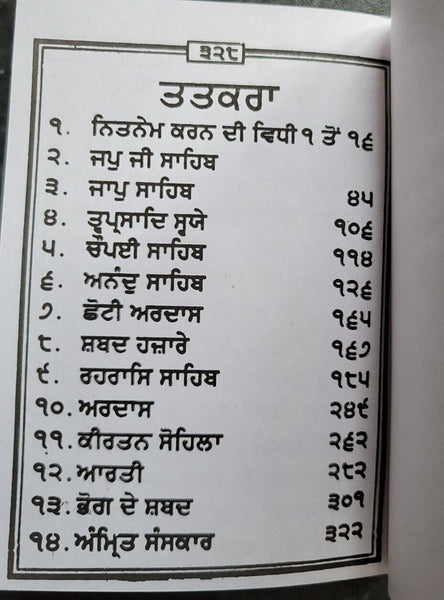 ੩੨੮
ਤਤਕਰਾ
੧. ਨਿਤਨੇਮ ਕਰਨ ਦੀ ਵਿਧੀ ੧ ਤੋਂ ੧੬
੨. ਜਪੁ ਜੀ ਸਾਹਿਬ
੩. ਜਾਪੁ ਸਾਹਿਬ ੪੫
੪. ਤ੍ਵਪ੍ਰਸਾਦਿ ਸ੍ਵਯੇ ੧੦੬
੫. ਚੌਪਈ ਸਾਹਿਬ ੧੧੪
੬. ਅਨੰਦੁ ਸਾਹਿਬ ੧੨੬
੭. ਛੋਟੀ ਅਰਦਾਸ ੧੬੫
੮. ਸ਼ਬਦ ਹਜ਼ਾਰੇ ੧੬੭
੯. ਰਹਰਾਸਿ ਸਾਹਿਬ ੧੮੫
੧੦. ਅਰਦਾਸ ੨੪੯
੧੧. ਕੀਰਤਨ ਸੋਹਿਲਾ ੨੬੨
੧੨. ਆਰਤੀ ੨੮੨
੧੩. ਭੋਗ ਦੇ ਸ਼ਬਦ ੩੦੧
੧੪. ਅੰਮ੍ਰਿਤ ਸੰਸਕਾਰ ੩੨੨